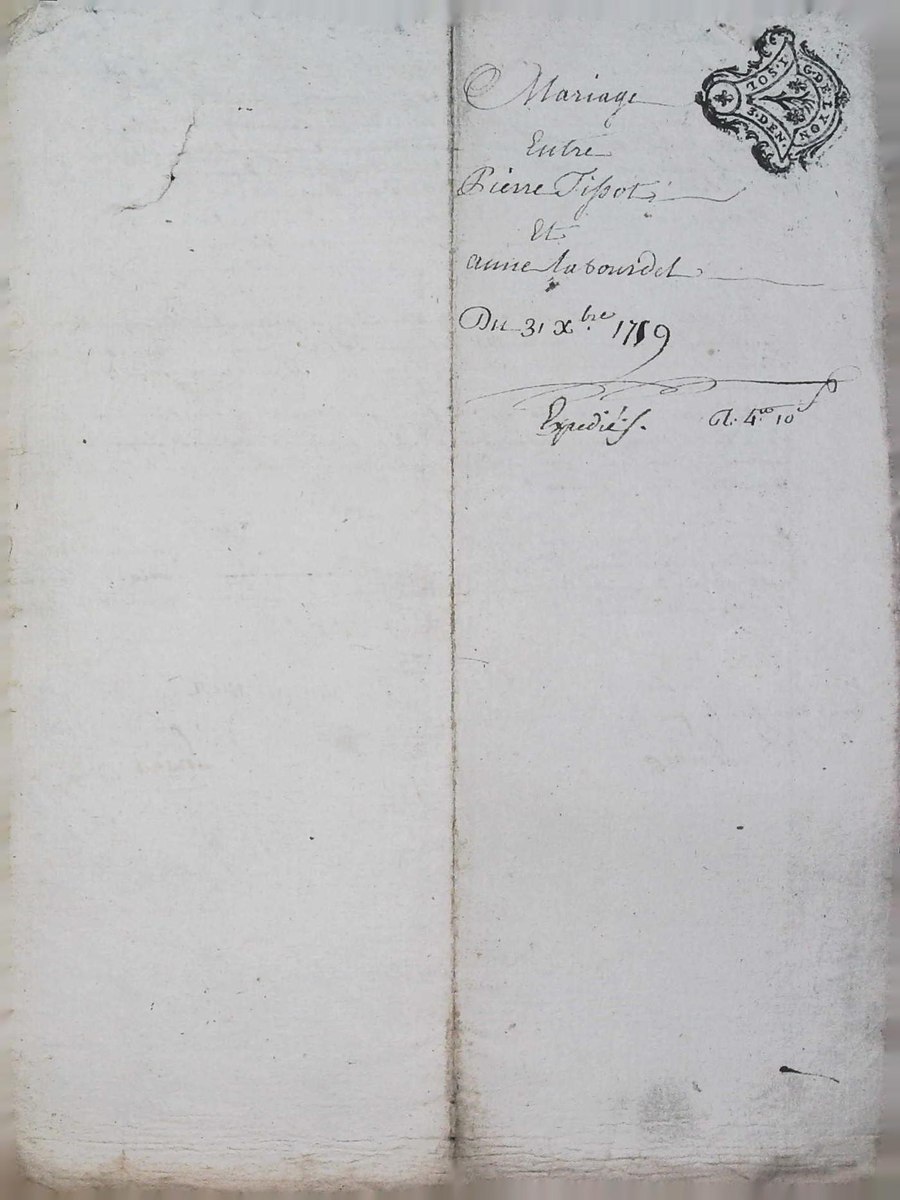 Mariage
Entre
Pierre Tissot
Et
anne labourdel
Du 31 xbre 1759
Expediés. 4 10
G. DE LYON
3. DEN.